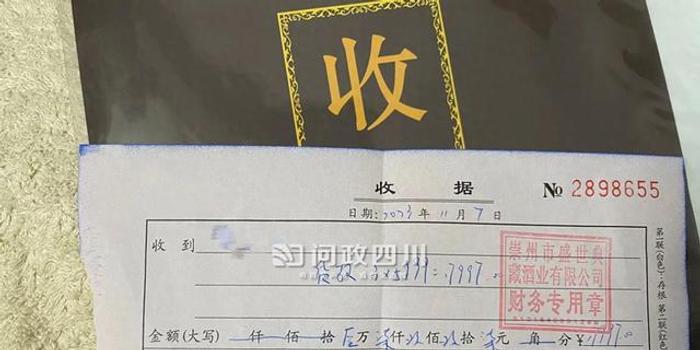 收
收 据
№ 2898655
日期:2023年 11月 7日
收 到
问政四川
货款 3×5999=17997.00
崇州市盛世典
藏酒业有限公司
财务专用章
金额(大写) 仟 佰 拾 壹万 柒仟 玖佰 玖拾 柒元 角 分 ¥17997.00
第一联(白色):存根 第二联(红色